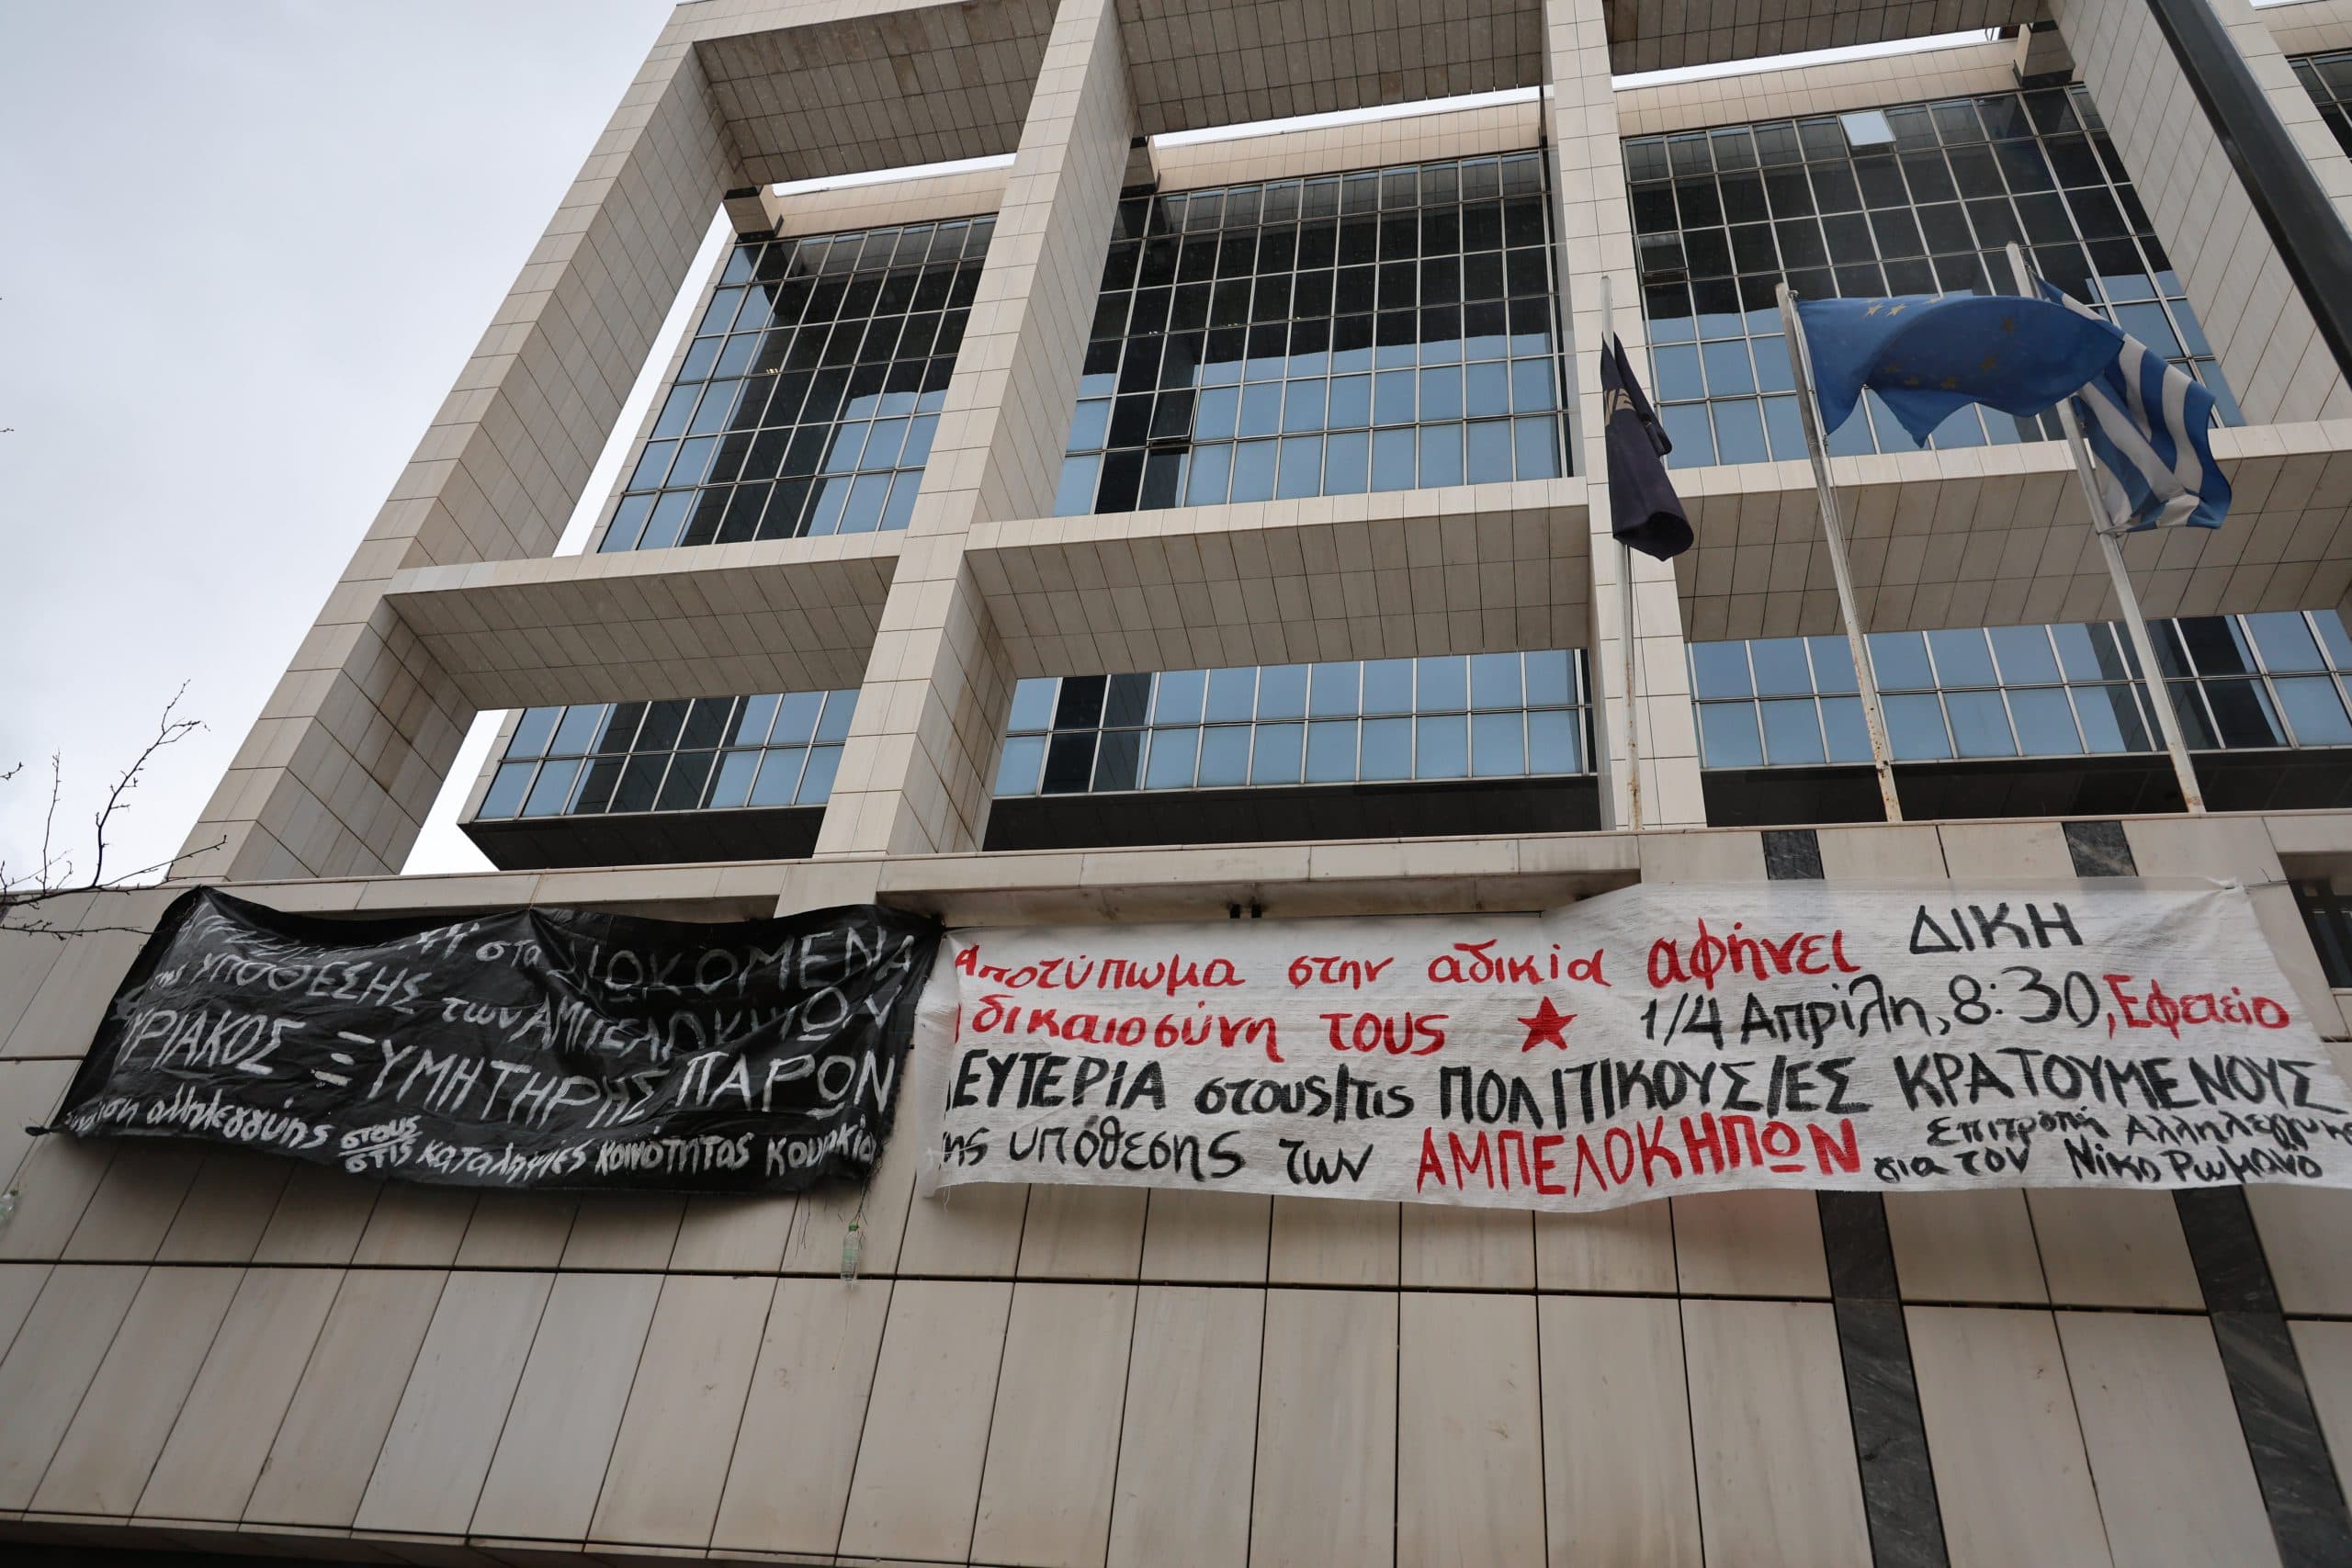 στα ΔΙΩΚΟΜΕΝΑ
της ΥΠΟΘΕΣΗΣ των ΑΜΠΕΛΟΚΗΠΩΝ
ΥΡΙΑΚΟΣ ΞΥΜΗΤΗΡΗΣ ΠΑΡΩΝ
αλληλεγγύης στους/στις καταληψίες κοινότητας
Αποτύπωμα στην αδικία αφήνει
δικαιοσύνη τους ★
ΔΙΚΗ
1/4 Απρίλη, 8:30, Εφετείο
ΕΥΤΕΡΙΑ στους/τις ΠΟΛΙΤΙΚΟΥΣ/ΕΣ ΚΡΑΤΟΥΜΕΝΟΥΣ
ης υπόθεσης των ΑΜΠΕΛΟΚΗΠΩΝ
Επιτροπή Αλληλεγγύης
για τον Νίκο Ρωμανό